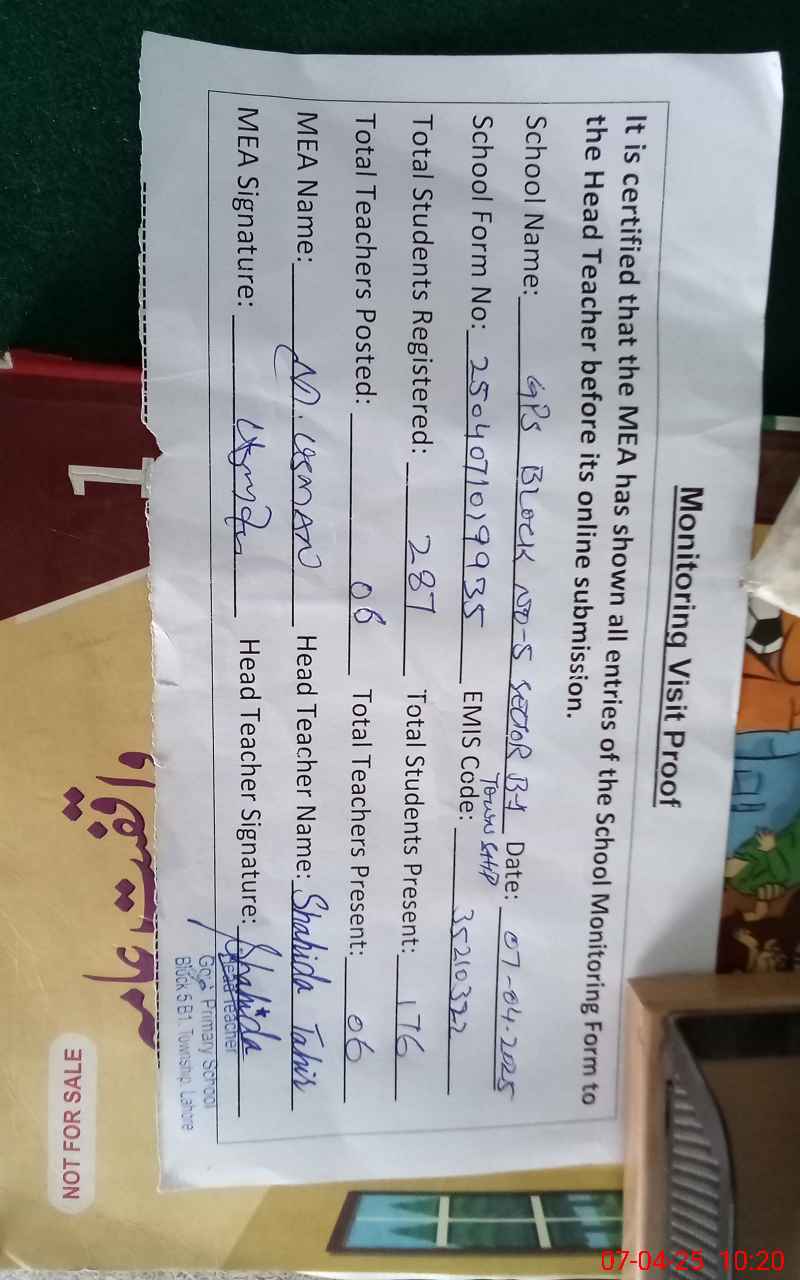 Monitoring Visit Proof
It is certified that the MEA has shown all entries of the School Monitoring Form to
the Head Teacher before its online submission.
School Name: GPS BLOCK NO-5 SECTOR B-1 Date: 07-04-2025
TOWNSHIP
School Form No: 2504071019935 EMIS Code: 35210322
Total Students Registered: 287 Total Students Present: 176
Total Teachers Posted: 06 Total Teachers Present: 06
MEA Name: M. USMAN Head Teacher Name: Shahida Tahir
MEA Signature: Usman Head Teacher Signature: Shahida
Head Teacher
Gov: Primary School
Block 5 B1. Township, Lahore
1
NOT FOR SALE
07-04-25 10:20